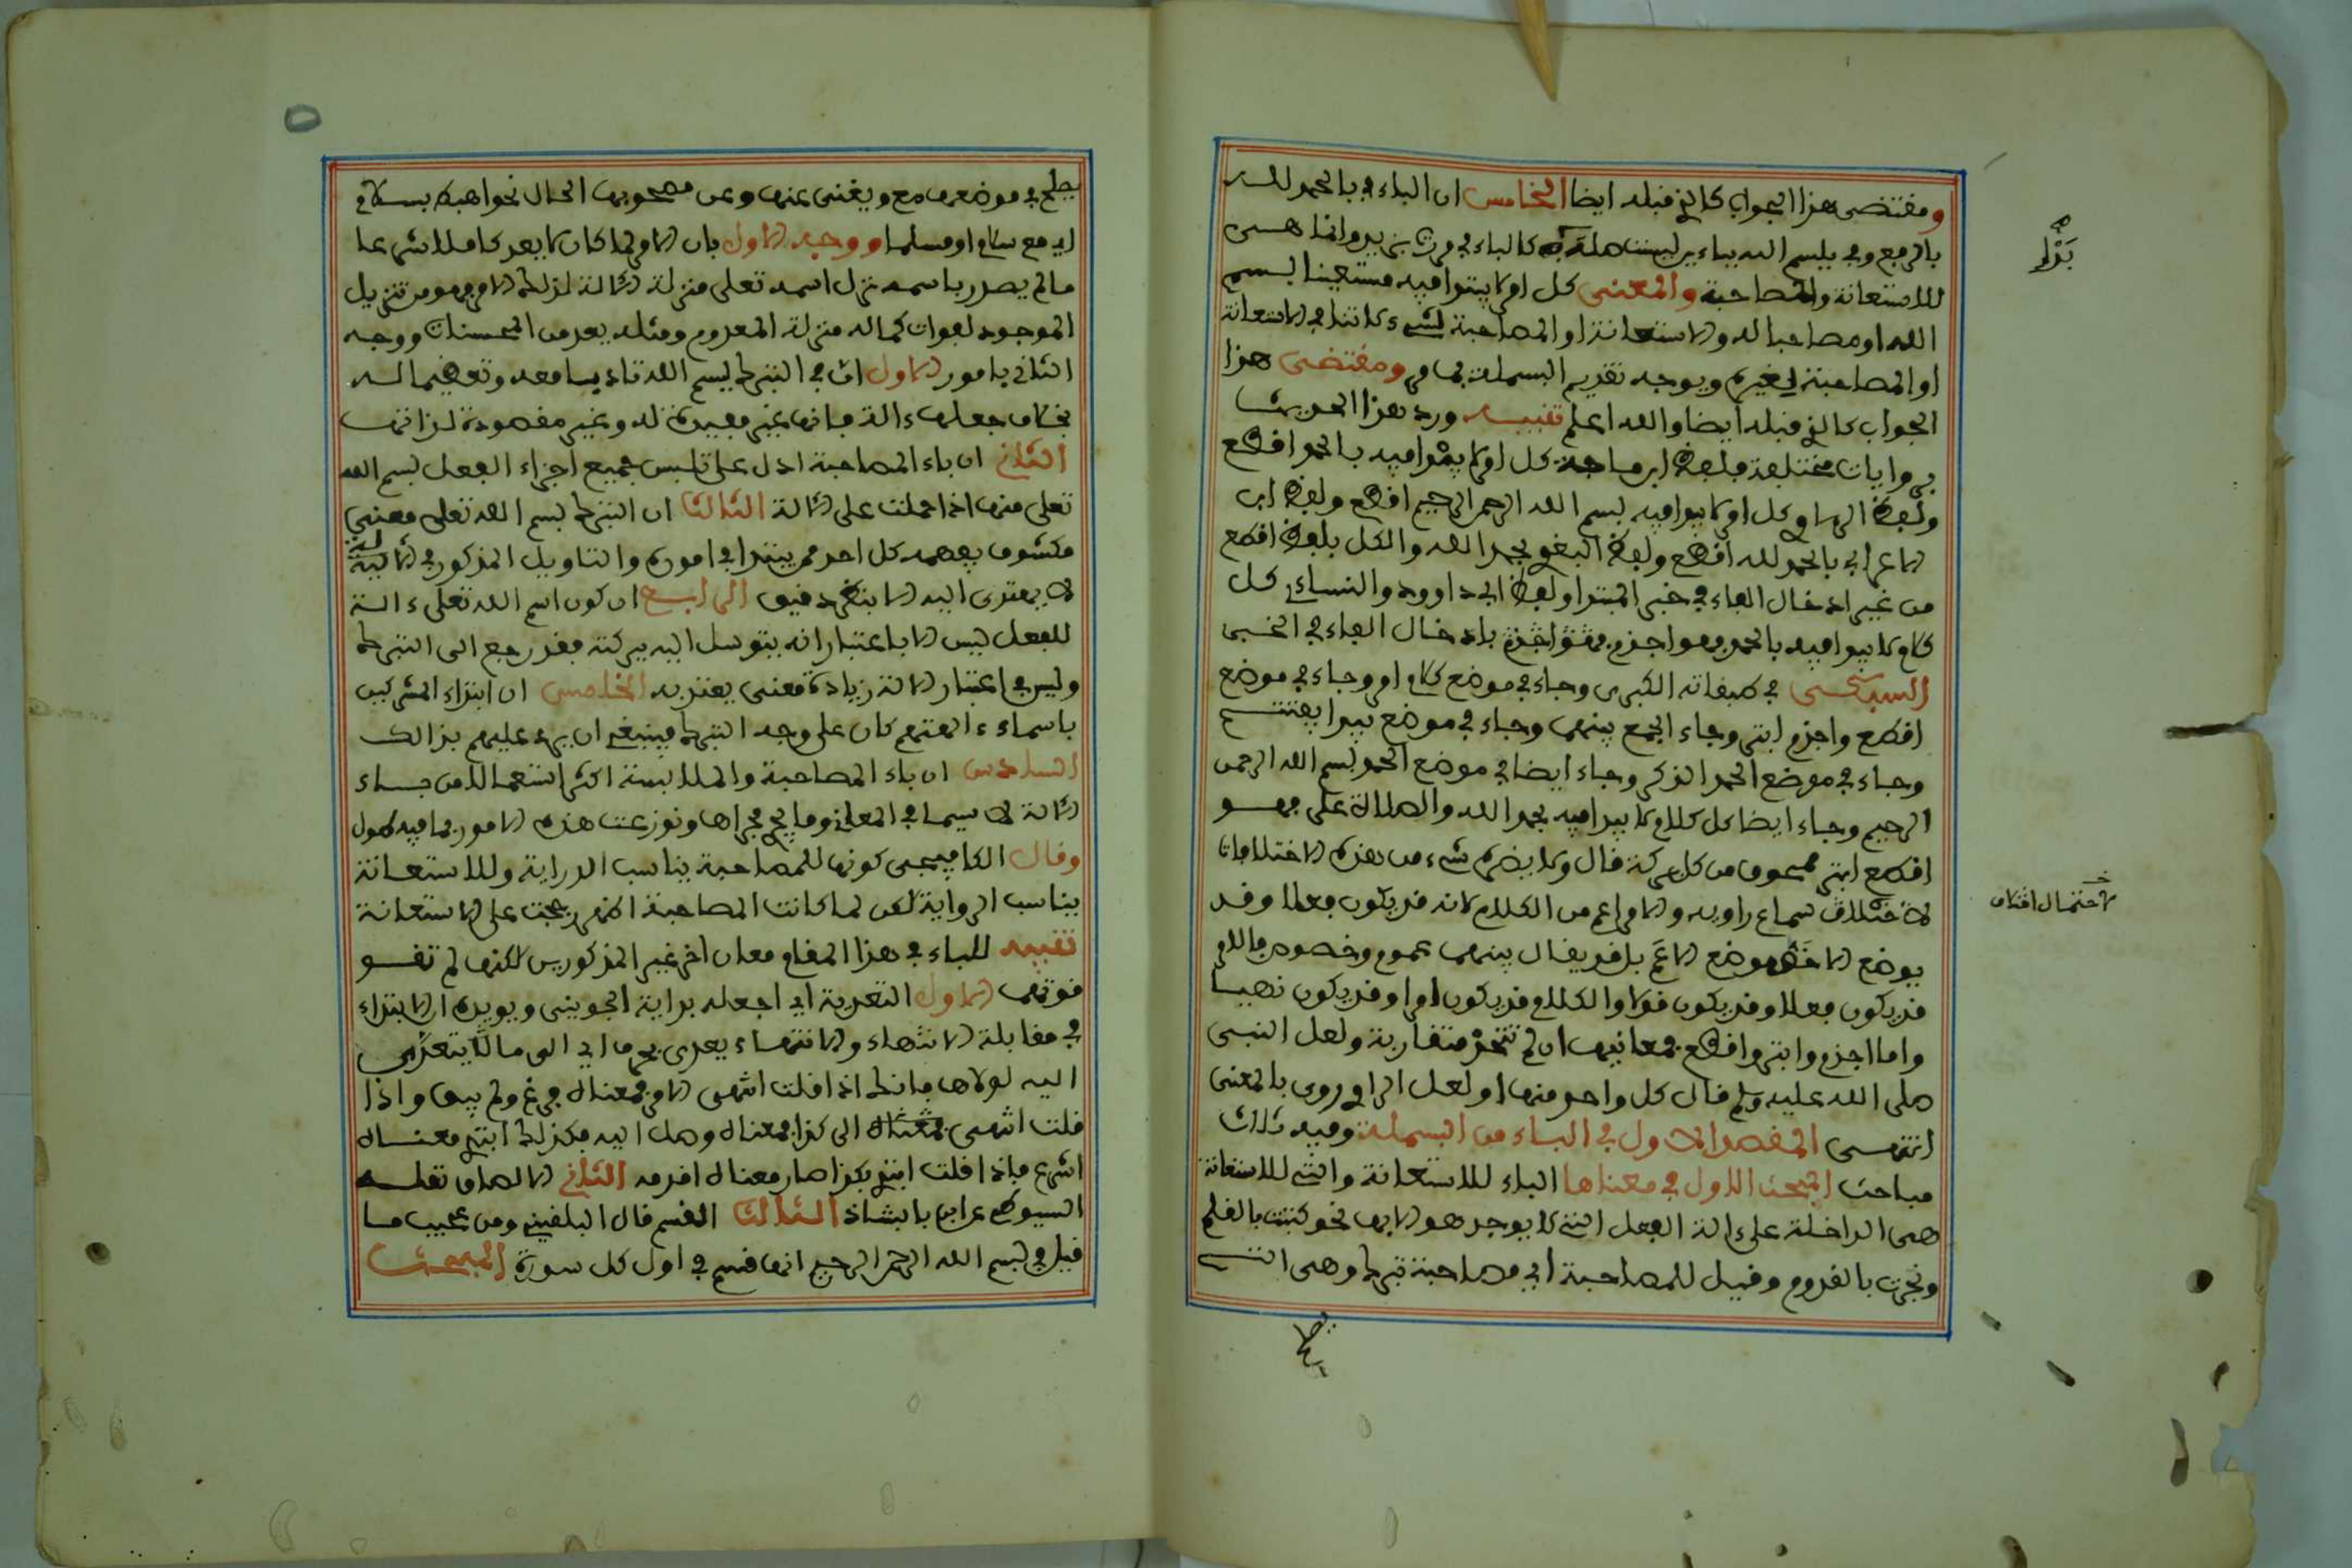 ومقتضى هذا الجواب كالذي قبله ايضا الخامس ان الباء في بالحمد لله
بالرفع وفي ببسم الله بباءين ليست صلة كالباء في مررت بزيد وانما هى
للاستعانة والمصاحبة والمعنى كل امر لا يبتدا فيه مستعينا بسم
الله او مصاحبا له والاستعانة او المصاحبة لشيء لا تنافي الاستعانة
او المصاحبة لغيره ويوجه تقديم البسملة بما مر ومقتضى هذا
الجواب كالذي قبله ايضا والله اعلم تنبيه ورد هذا الحديث
بروايات مختلفة فلفظ ابن ماجة كل امر لا يبدا فيه بالحمد اقطع
ولفظ الرهاوي كل امر لا يبدا فيه بسم الله الرحمن الرحيم اقطع ولفظ ابن
الاعرابي بالحمد لله اقطع ولفظ البغوي بحمد الله والكل بلفظ اقطع
من غير ادخال الفاء في خبر المبتدا ولفظ ابي داوود والنساءي كل
كلام لا يبدا فيه بالحمد فهو اجذم بادخال الفاء في الخبر
السبكي في طبقاته الكبرى وجاء في موضع كلام امر وجاء في موضع
اقطع واجذم ابتر وجاء الجمع بينهما وجاء في موضع يبدا يفتتح
وجاء في موضع الحمد الذكر وجاء ايضا في موضع الحمد بسم الله الرحمن
الرحيم وجاء ايضا كل كلام لا يبدا فيه بحمد الله والصلاة على فهو
اقطع ابتر ممحوق من كل بركة قال ولا يضر شيء من هذه الاختلافات
لاختلاف سماع راويه والامر اعم من الكلام لانه قد يكون فعلا وقد
يوضع الاخص موضع الاعم بل قد يقال بينهما عموم وخصوص فالامر
قد يكون فعلا وقد يكون قولا والكلام قد يكون امرا وقد يكون نهيا
واما اجذم وابتر واقطع فمعانيها ان لم تتحد متقاربة ولعل النبى
صلى الله عليه وسلم قال كل واحد منها او لعل الراوي روى بالمعنى
انتهى المقصد الاول في الباء من البسملة وفيه ثلاث
مباحث المبحث الاول في معناها الباء للاستعانة والتي للاستعانة
هى الداخلة على ءالة الفعل التي لا يوجد هو الا بها نحو كتبت بالقلم
ونجرت بالقدوم وقيل للمصاحبة اي مصاحبة تبرك وهى التي
يصلح
بدل
لاحتمال اختلاف
٥
يصلح في موضعها مع ويغنى عنها وعن مصحوبها الحال نحو اهبط بسلام
اي مع سلام او مسلما ووجه الاول بان الامر لما كان لا يعد كاملا شرعا
ما لم يصدر باسمه نزل اسمه تعلى منزلة الالة لذلك الامر وهو من تنزيل
الموجود لفوات كماله منزلة المعدوم ومثله يعد من المحسنات ووجه
الثاني بامور الاول ان في التبرك ببسم الله تادبا معه وتعظيما له
بخلاف جعلها ءالة فانها غير مفيدة له وغير مقصودة لذاتها
الثاني ان باء المصاحبة ادل على تلبس جميع اجزاء الفعل بسم الله
تعلى منها اذا حملت على الالة الثالث ان التبرك بسم الله تعلى معنى
مكشوف يفهمه كل احد ممن يبتدا في اموره والتاويل المذكور في الالية
لا يهتدى اليه الا بنظر دقيق الرابع ان كون اسم الله تعلى ءالة
للفعل ليس الا باعتبار انه يتوسل اليه ببركته فقد رجع الى التبرك
وليس في اعتبار الالة زيادة معنى يعتد به الخامس ان ابتداء المشركين
باسماء ءالهتهم كان على وجه التبرك فينبغي ان يرد عليهم بذالك
السادس ان باء المصاحبة والملابسة اكثر استعمالا من باء
الالة لا سيما في المعاني وما يجري مجراها ونوزعت هذه الامور بما فيه طول
وقال الكافيجي كونها للمصاحبة يناسب الدراية وللاستعانة
يناسب الرواية لكن لما كانت المصاحبة اظهر رجحت على الاستعانة
تنبيه للباء في هذا المقام معان اخر غير المذكورين لكنها لم تقو
قوتهما الاول التعدية اي اجعله بداية الجويني ويويده ان الابتداء
في مقابلة الانتهاء والانتهاء يعدى بحرف اي الى ما لا يتعدى
اليه لولاها فانك اذا قلت انتهى الامر فمعناه فرغ ولم يبق واذا
قلت انتهى الى كذا فمعناه وصل اليه فكذلك ابتدئ معناه
اشرع فاذا قلت ابتدئ بكذا صار معناه اقدمه الثاني الالصاق نقله
السيوطي عن ابن بابشاذ الثالث القسم قال البلقيني ومن غريب ما
قيل في بسم الله الرحمن الرحيم انها قسم في اول كل سورة المبحث